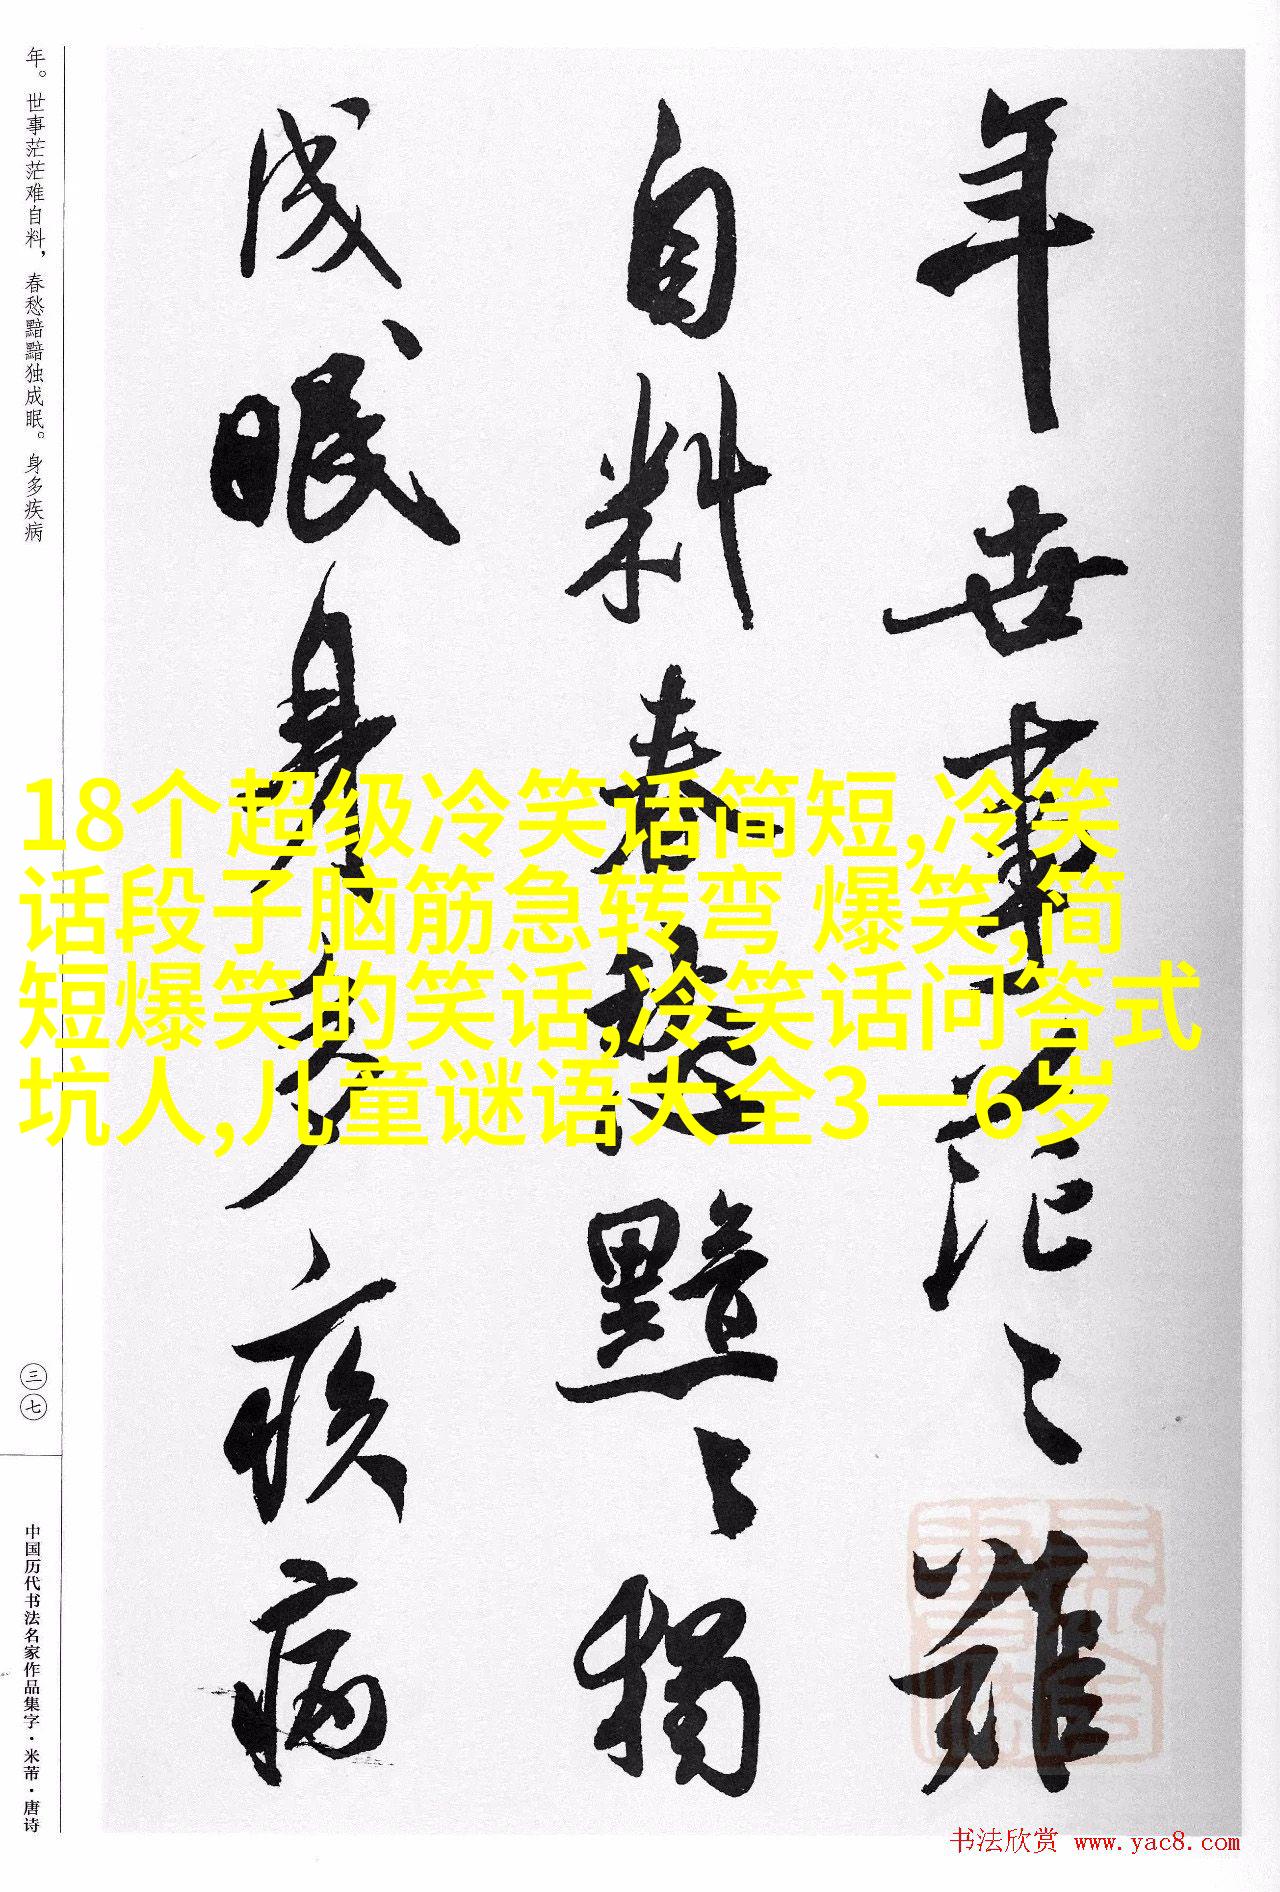 年世事茫〻難
自料春愁黯〻獨
成眠身多疾病
年。世事茫茫难自料，春愁黯黯独成眠。身多疾病
三七
中国历代书法名家作品集字·米芾·唐诗
18个超级冷笑话简短,冷笑
话段子脑筋急转弯 爆笑,简
短爆笑的笑话,冷笑话问答式
坑人,儿童谜语大全3一6岁
书法欣赏 www.yac8.com